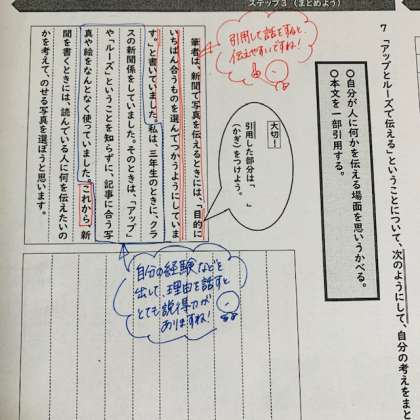 ステップ３（まとめよう）
7 「アップとルーズで伝える」ということについて、次のようにして、自分の考えをまと
○自分が人に何かを伝える場面を思いうかべる。
○本文を一部引用する。
大切！
引用した部分は「　」
（かぎ）をつけよう。
引用して話すと、
伝えやすいですね！
筆者は、新聞で写真を伝えるときには、「目的に
いちばん合うものを選んでつかうようにしていま
す。」と書いていました。私は、三年生のときに、クラ
スの新聞係をしていました。そのときは、「アップ」
や「ルーズ」ということを知らずに、記事に合う写
真や絵をなんとなく使っていました。これから新
聞を書くときには、読んでいる人に何を伝えたいの
かを考えて、のせる写真を選ぼうと思います。
自分の経験などを
出して、理由を話すと
とても説得力が
ありますね！